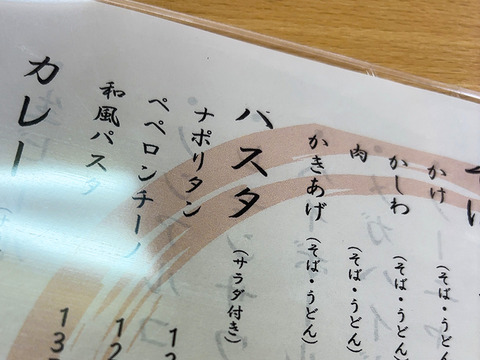 かけ（そば・うどん）
かしわ（そば・うどん）
肉（そば・うどん）
かきあげ（そば・うどん）
パスタ（サラダ付き）
ナポリタン
ペペロンチーノ
和風パスタ
カレー